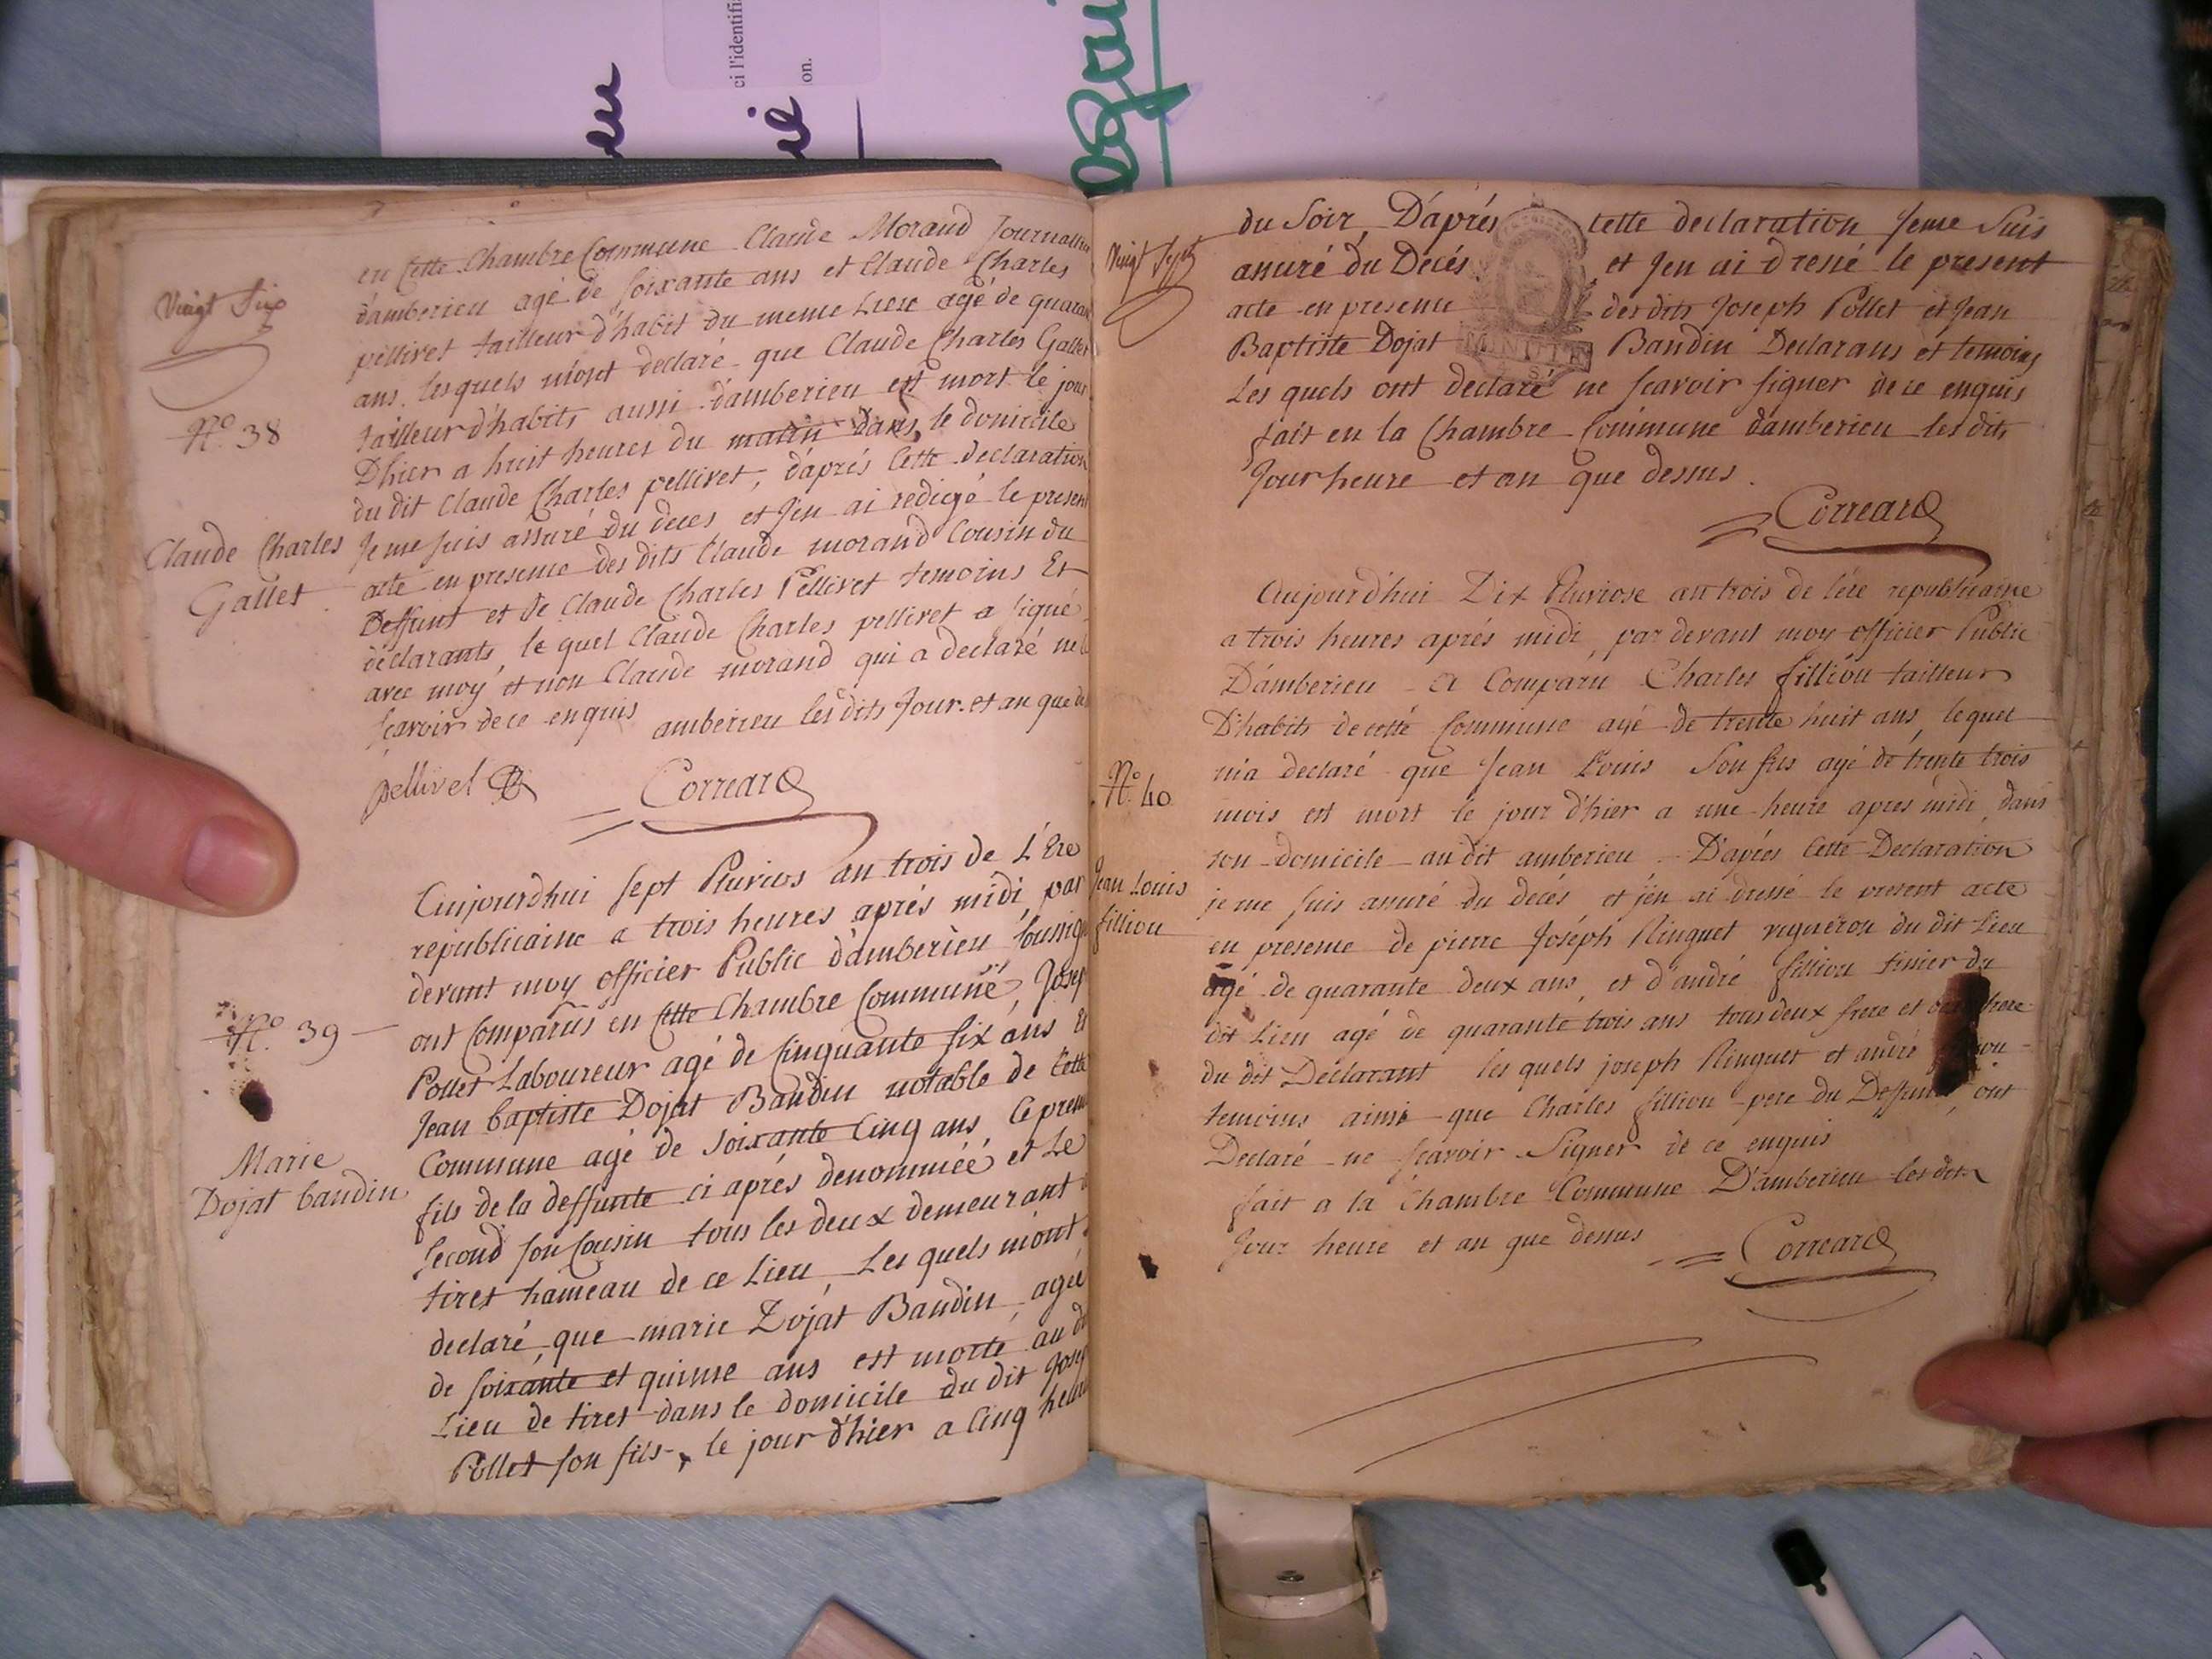 ci l'identifi
on.
Vingt Six
en cette Chambre Commune Claude Morand Journalier
d'amberieu agé de soixante ans et Claude Charles
pellivet tailleur d'habit du meme Lieu agé de quaran
ans, lesquels m'ont declaré que Claude Charles Gallet
tailleur d'habits aussi d'amberieu est mort le jour
D'hier a huit heures du matin dans le domicile
du dit Claude Charles pellivet, d'aprés cette declaration
Je me suis assuré du deces et J'en ai redigé le present
acte en presence des dits Claude morand Cousin du
Deffunt et de Claude Charles Pellivet temoins Et
declarants, le quel Claude Charles pellivet a signé
avec moy et non Claude morand qui a declaré ne
scavoir de ce enquis amberieu les dits Jour et an que de
N.º 38
Claude Charles
Gallet
pellivet
Correard
Aujourdhui sept Pluvios an trois de L'Ere
republicaine a trois heures aprés midi, par
devant moy officier Public d'amberieu soussig
ont Comparus en cette Chambre Commune, Josep
Pollet Laboureur agé de Cinquante six ans Et
Jean baptiste Dojat Baudin notable de Cette
Commune agé de soixante Cinq ans, le prem
fils de la deffunte ci aprés denommée et Le
second son Cousin tous les deux demeurant
tiret hameau de ce Lieu, Les quels m'ont
declaré que marie Dojat Baudin agée
de soixante et quinse ans est morte au d
Lieu de tiret dans le domicile du dit Josep
Pollet son fils, le jour d'hier a Cinq heur
N.º 39
Marie
Dojat baudin
Vingt Sept
du Soir, D'aprés cette declaration Je me Suis
assuré du Decés et J'en ai Dressé le present
acte en presence des dits Joseph Pollet et Jean
Baptiste Dojat Baudin Declarans et temoins
Les quels ont declaré ne scavoir signer de ce enquis
fait en la Chambre Commune d'amberieu les dits
Jour heure et an que dessus.
MINUTE
Correard
Aujourd'hui Dix Pluviose an trois de l'ére republicaine
a trois heures aprés midi, par devant moy officier Public
D'amberieu a Comparu Charles filliou tailleur
D'habits de cette Commune agé de trente huit ans, lequel
m'a declaré que Jean Louis Son fils agé de trente trois
mois est mort le jour d'hier a une heure apres midi, dans
son domicile au dit amberieu D'aprés Cette Declaration
je me suis assuré du decés et j'en ai dressé le present acte
en presence de pierre Joseph Ringuet vigneron du dit Lieu
agé de quarante deux ans, et d'andré filliou du
dit Lieu agé de quarante trois ans tous deux frere et
du dit Declarant les quels joseph Ringuet et andré
temoins ainsi que Charles filliou pere du Deffunt, ont
Declaré ne scavoir Signer de ce enquis
fait a la Chambre Commune D'amberieu les dits
Jour heure et an que dessus
N.º 40
Jean Louis
filliou
Correard